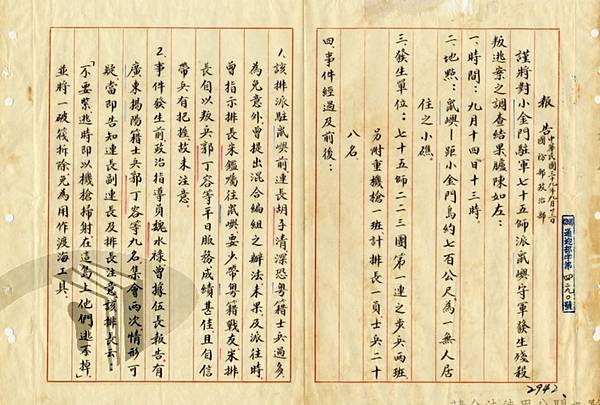 報告 中華民國三十九年九月廿二日
國防部政治部
謹將對小金門駐軍七十五師派鼠嶼守軍發生殘殺
叛逃案之調查結果臚陳如左：
一、時間：九月十四日十三時。
二、地點：鼠嶼－距小金門島約七百公尺為一無人居
住之小礁。
三、發生單位：七十五師二二三團第一連之步兵兩班、
另附重機槍一班、計排長一員士兵二十
八名。
四、事件經過及前後：
1、該排派駐鼠嶼前連長胡子清深恐粵籍士兵過多、
為免意外、曾提出混合編組之辦法未果、及派往時、
曾指示排長朱鑑囑往鼠嶼要少帶粵籍戰友、朱排
長自以叛兵郭丁容等平日服務成績甚佳且自信
帶兵有把握故未注意。
2、事件發生前政治指導員魏水樣曾據伍長報告、有
廣東揭陽籍士兵郭丁容等九名集會兩次、情形可
疑當即告知連長副連長及排長注意、該排長云：
「不要緊逃時即以機槍掃射在這島上他們逃不掉」
並將一破筏拆除免為用作渡海工具、
2942.